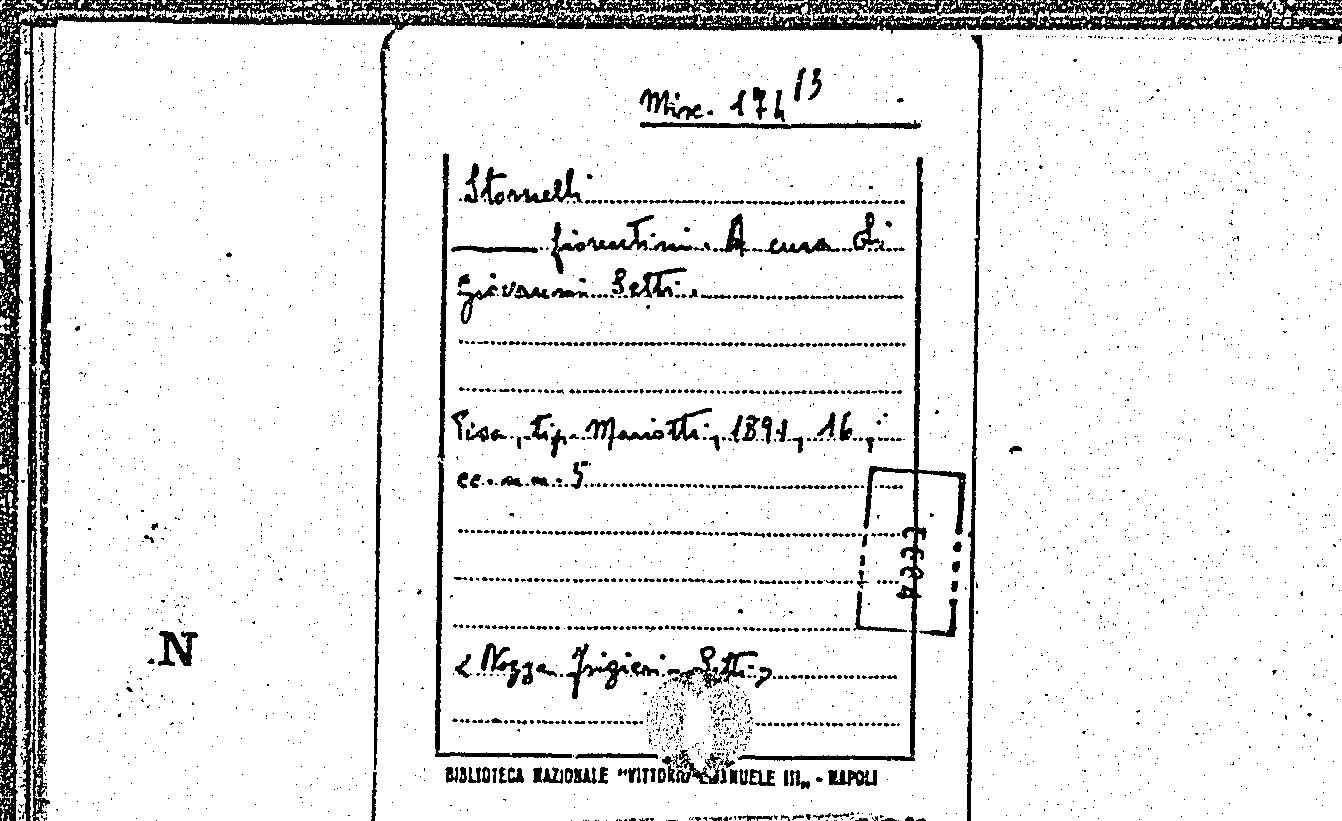 Misc. 174 13
Stornelli
fiorentini. A cura di
Giovanni Setti.
Pisa, tip. Mariotti, 1891, 16,
cc. n. n. 5
N
< Nozze Frigieri - Setti >
BIBLIOTECA NAZIONALE "VITTORIO EMANUELE III„ - NAPOLI